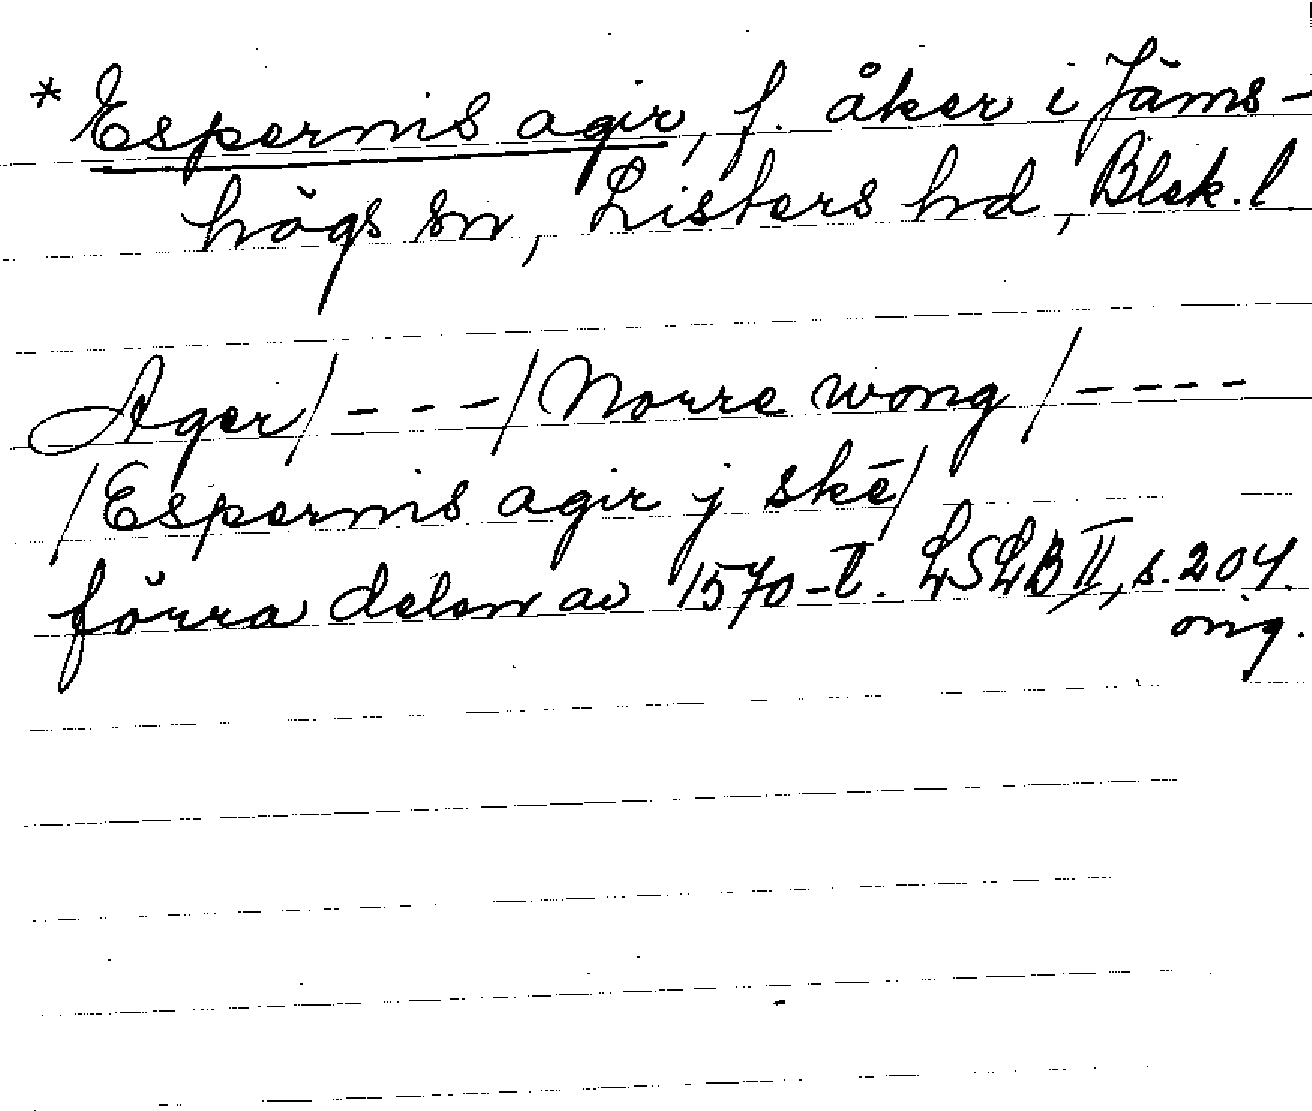 * Espernis agir, f. åker i Jäms-
högs sn, Listers hd, Blek. l.
Ager/- - - -/Norre wong/- - - -
/Espernis agir j skē/
förra delen av 1570-t. LSLB II, s. 204.
orig.